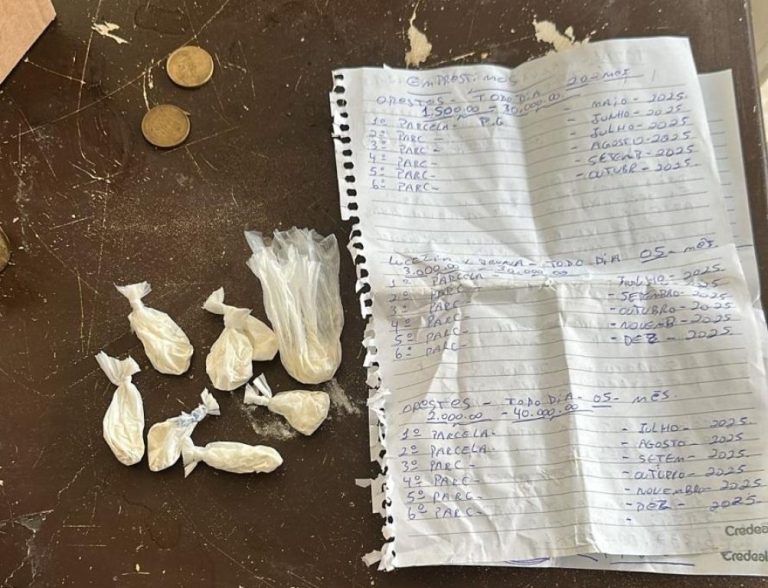 EMPRESTIMOS
ORESTES - TODO DIA 20-MES
1.500.00 = 30.000.00 - MAIO - 2025
1º PARCELA - P.G - JUNHO - 2025
2º PARC - JULHO - 2025
3º PARC - - AGOSTO - 2025
4º PARC - - SETEMB - 2025
5º PARC - - OUTUBR - 2025
6º PARC -
- TODO DIA 05 - MÊS
3.000.00 - 30.000.00
1º PARCELA - JULHO - 2025
2º PARC - SETEMBRO - 2025
3º PARC - OUTUBRO - 2025
4º PARC - - NOVEMB - 2025
5º PARC - - DEZ - 2025
6º PARC -
ORESTES - TODO DIA - 05 - MÊS.
2.000.00 - 40.000.00
1º PARCELA - - JULHO - 2025
2º PARCELA - - AGOSTO - 2025
3º PARC - - SETEM - 2025
4º PARC - - OUTUBRO - 2025
5º PARC - - NOVEMBRO - 2025
6º PARC - - DEZ - 2025
Credeal
Credeal